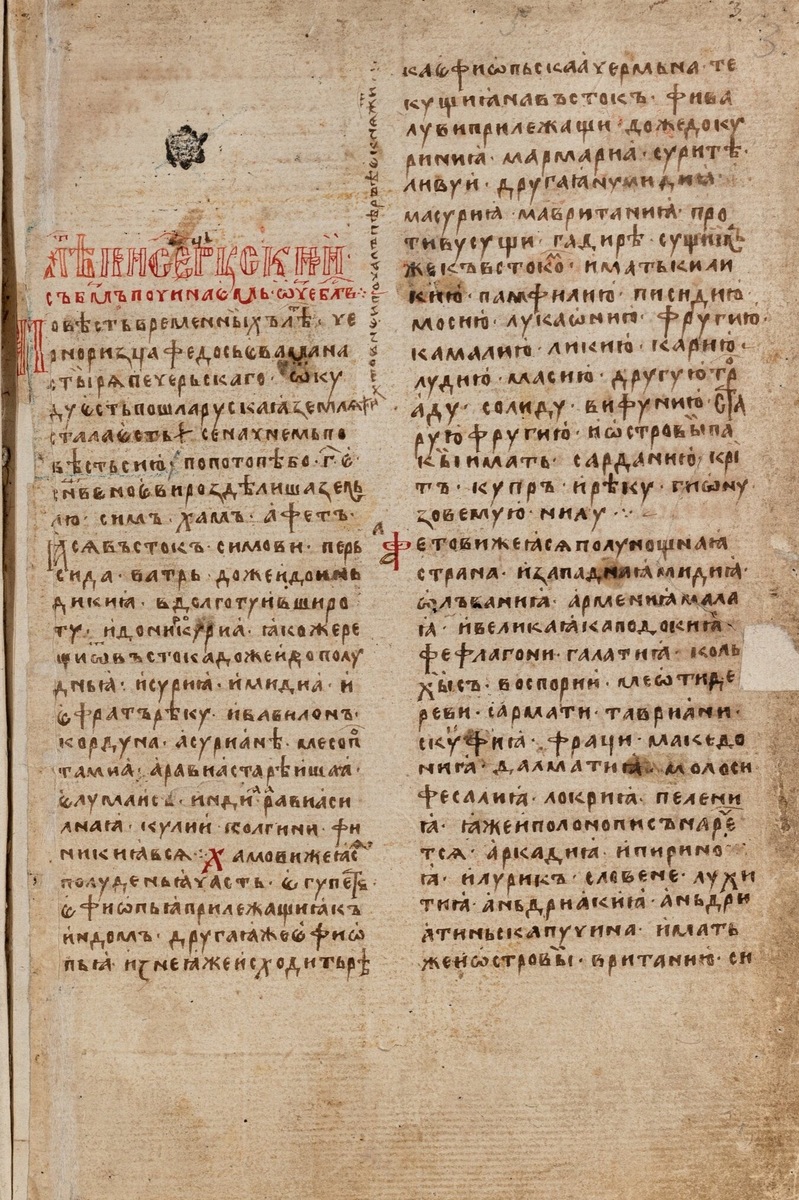 лѣтописець рускии·
съ бг҃мъ починаемь ѿч҃е блв҃·
Повѣсть временныхъ лѣт· че
рноризца федосьева мана
стырѧ печерьскаго· ѿку
ду єсть пошла рускаꙗ землѧ
стала єсть се начнемь по
вѣсть сию· по потопѣ бо· г҃· є
сн҃ве ноєви роздѣлиша земь
лю· симъ· хамъ· афетъ·
ꙗсѧ въстокъ· симови· перь
сида· ватрь· доже и до инь
дикиꙗ· в долготу и в широ
ту· и до никурꙗ· ꙗкоже ре
щи ѿ въстока доже и до полу
дньꙗ· и сурꙗ· и мидиа· и
єфратъ рѣку· и вавилонъ·
кордуна· асурианѣ· месоп
тамиа· аравиа старѣишаа·
єлумаись· инди· равиа си
лнаꙗ· кулии· колгини· фи
никиꙗ всѧ· Хамови же ꙗс
полуденьꙗ часть· єгупет·
єфиѡпьꙗ прилежащиꙗ къ
индомъ· другаꙗ же єфиѡ
пьꙗ· из неꙗже исходить рѣ
ка єфиѡпьскаа чермьна· те
кущиꙗ на въстокъ· фива
луви прилежащи· доже до ку
риниꙗ· мармариа· суритѣ·
ливуи· другаꙗ нумидиꙗ·
масуриꙗ· мавританиꙗ· про
тиву сущи· гадирѣ· сущим
же къ встоко· имать кили
кию· памфилию· писидию
мосию· лукаѡнию· фругию·
камалию· ликию· карию·
лудию· масию· другую тр
аду· солиду· вифунию· ста
рую фругию· и ѡстровы па
кы имать· сарданию· кри
тъ· купръ· и рѣку· гиѡну
зовемую· нилу·
Афетови же ꙗсѧ полунощнаꙗ
страна· и западнаꙗ мидиꙗ·
ѡлъваниꙗ· армениꙗ мала
ꙗ· и великаꙗ каподокиꙗ·
фефлагони· галатиꙗ· коль
хысъ· воспории· меѡти де
реви· сармати· тавриани·
скуфиꙗ· фраци· македо
ниꙗ· далматиꙗ· молоси
фесалиꙗ· локриꙗ· пелени
ꙗ· ꙗже и полопонисъ наре
тсѧ· аркадиꙗ· ипирино
ꙗ· илурикъ· словене· лухи
тиꙗ· аньдриакиꙗ· аньдри
атиньска пучина· имать
же и ѡстровы· вританию· си